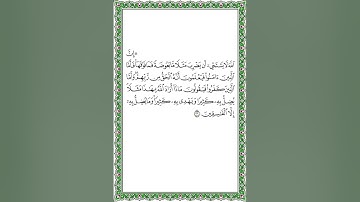 ۞ إِنَّ
ٱللَّهَ لَا يَسْتَحْىِۦٓ أَن يَضْرِبَ مَثَلًا مَّا بَعُوضَةً فَمَا فَوْقَهَا ۚ فَأَمَّا
ٱلَّذِينَ ءَامَنُوا۟ فَيَعْلَمُونَ أَنَّهُ ٱلْحَقُّ مِن رَّبِّهِمْ ۖ وَأَمَّا
ٱلَّذِينَ كَفَرُوا۟ فَيَقُولُونَ مَاذَآ أَرَادَ ٱللَّهُ بِهَـٰذَا مَثَلًا ۘ
يُضِلُّ بِهِۦ كَثِيرًا وَيَهْدِى بِهِۦ كَثِيرًا ۚ وَمَا يُضِلُّ بِهِۦٓ
إِلَّا ٱلْفَـٰسِقِينَ